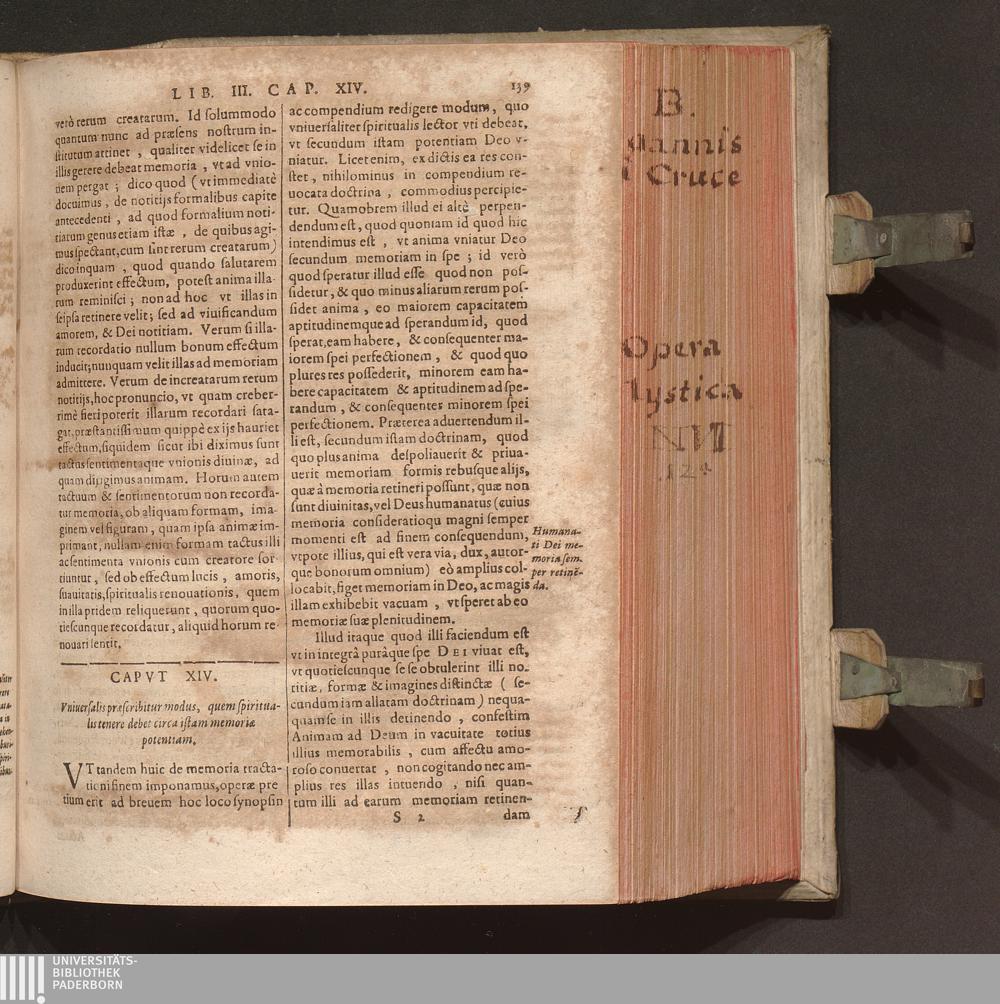 LIB. III. CAP. XIV. 139
verò rerum creatarum. Id solummodo
quantum nunc ad præsens nostrum in-
stitutum attinet , qualiter videlicet se in
illis gerere debeat memoria , vt ad vnio-
nem pergat ; dico quod ( vt immediatè
docuimus , de notitijs formalibus capite
antecedenti , ad quod formalium noti-
tiarum genus etiam istæ , de quibus agi-
mus spectant, cum sint rerum creatarum)
dico inquam , quod quando salutarem
produxerint effectum, potest anima illa-
rum reminisci ; non ad hoc vt illas in
seipsa retinere velit; sed ad viuificandum
amorem, & Dei notitiam. Verum si illa-
rum recordatio nullum bonum effectum
inducit; nunquam velit illas ad memoriam
admittere. Verum de increatarum rerum
notitijs, hoc pronuncio, vt quam creber-
rimè fieri poterit illarum recordari sata-
gat, præstantissimum quippè ex ijs hauriet
effectum, siquidem sicut ibi diximus sunt
tactus sentimentaque vnionis diuinæ, ad
quam dirigimus animam. Horum autem
tactuum & sentimentorum non recorda-
tur memoria, ob aliquam formam, ima-
ginem vel figuram , quam ipsa animæ im-
primant, nullam enim formam tactus illi
ac sentimenta vnionis cum creatore sor-
tiuntur , sed ob effectum lucis , amoris,
suauitatis, spiritualis renouationis, quem
in illa pridem reliquerunt , quorum quo-
tiescunque recordatur, aliquid horum re-
nouari sentit.
CAPVT XIV.
Vniuersalis præscribitur modus, quem spiritua-
lis tenere debet circa istam memoriæ
potentiam.
VT tandem huic de memoria tracta-
tioni finem imponamus, operæ pre
tium erit ad breuem hoc loco synopsin
ac compendium redigere modum, quo
vniuersaliter spiritualis lector vti debeat,
vt secundum istam potentiam Deo v-
niatur. Licet enim, ex dictis ea res con-
stet , nihilominus in compendium re-
uocata doctrina , commodius percipie-
tur. Quamobrem illud ei altè perpen-
dendum est, quod quoniam id quod hic
intendimus est , vt anima vniatur Deo
secundum memoriam in spe ; id verò
quod speratur illud esse quod non pos-
sidetur, & quo minus aliarum rerum pos-
sidet anima , eo maiorem capacitatem
aptitudinemque ad sperandum id, quod
sperat, eam habere, & consequenter ma-
iorem spei perfectionem , & quod quo
plures res possederit, minorem eam ha-
bere capacitatem & aptitudinem ad spe-
randum , & consequenter minorem spei
perfectionem. Præterea aduertendum il-
li est, secundum istam doctrinam, quod
quo plus anima despoliauerit & priua-
uerit memoriam formis rebusque alijs,
quæ à memoria retineri possunt, quæ non
sunt diuinitas, vel Deus humanatus (cuius
memoria consideratioqu magni semper
momenti est ad finem consequendum,
vtpote illius, qui est vera via, dux, autor-
que bonorum omnium) eò amplius col-
locabit, figet memoriam in Deo, ac magis
illam exhibebit vacuam , vt speret ab eo
memoriæ suæ plenitudinem.
Illud itaque quod illi faciendum est
vt in integrâ purâque spe DEI viuat est,
vt quotiescunque se se obtulerint illi no-
titiæ, formæ & imagines distinctæ ( se-
cundum iam allatam doctrinam ) nequa-
quam se in illis detinendo , confestim
Animam ad Deum in vacuitate totius
illius memorabilis , cum affectu amo-
roso conuertat , non cogitando nec am-
plius res illas intuendo , nisi quan-
tum illi ad earum memoriam retinen-
S 2 dam
Humana-
ti Dei me-
moria sem-
per retinē-
da.
B.
oannis
Cruce
Opera
ystica
124
UNIVERSITÄTS-
BIBLIOTHEK
PADERBORN